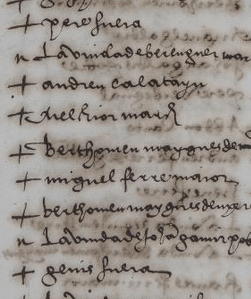 + pere fuera
n La viuda de berenguer mar
+ andreu calatayu
+ Melchior march
+ berthomeu maygues de m
+ miguel ferre maior
+ berthomeu maygues de mer
n La viuda de Joha gamir pob
+ genis fuera